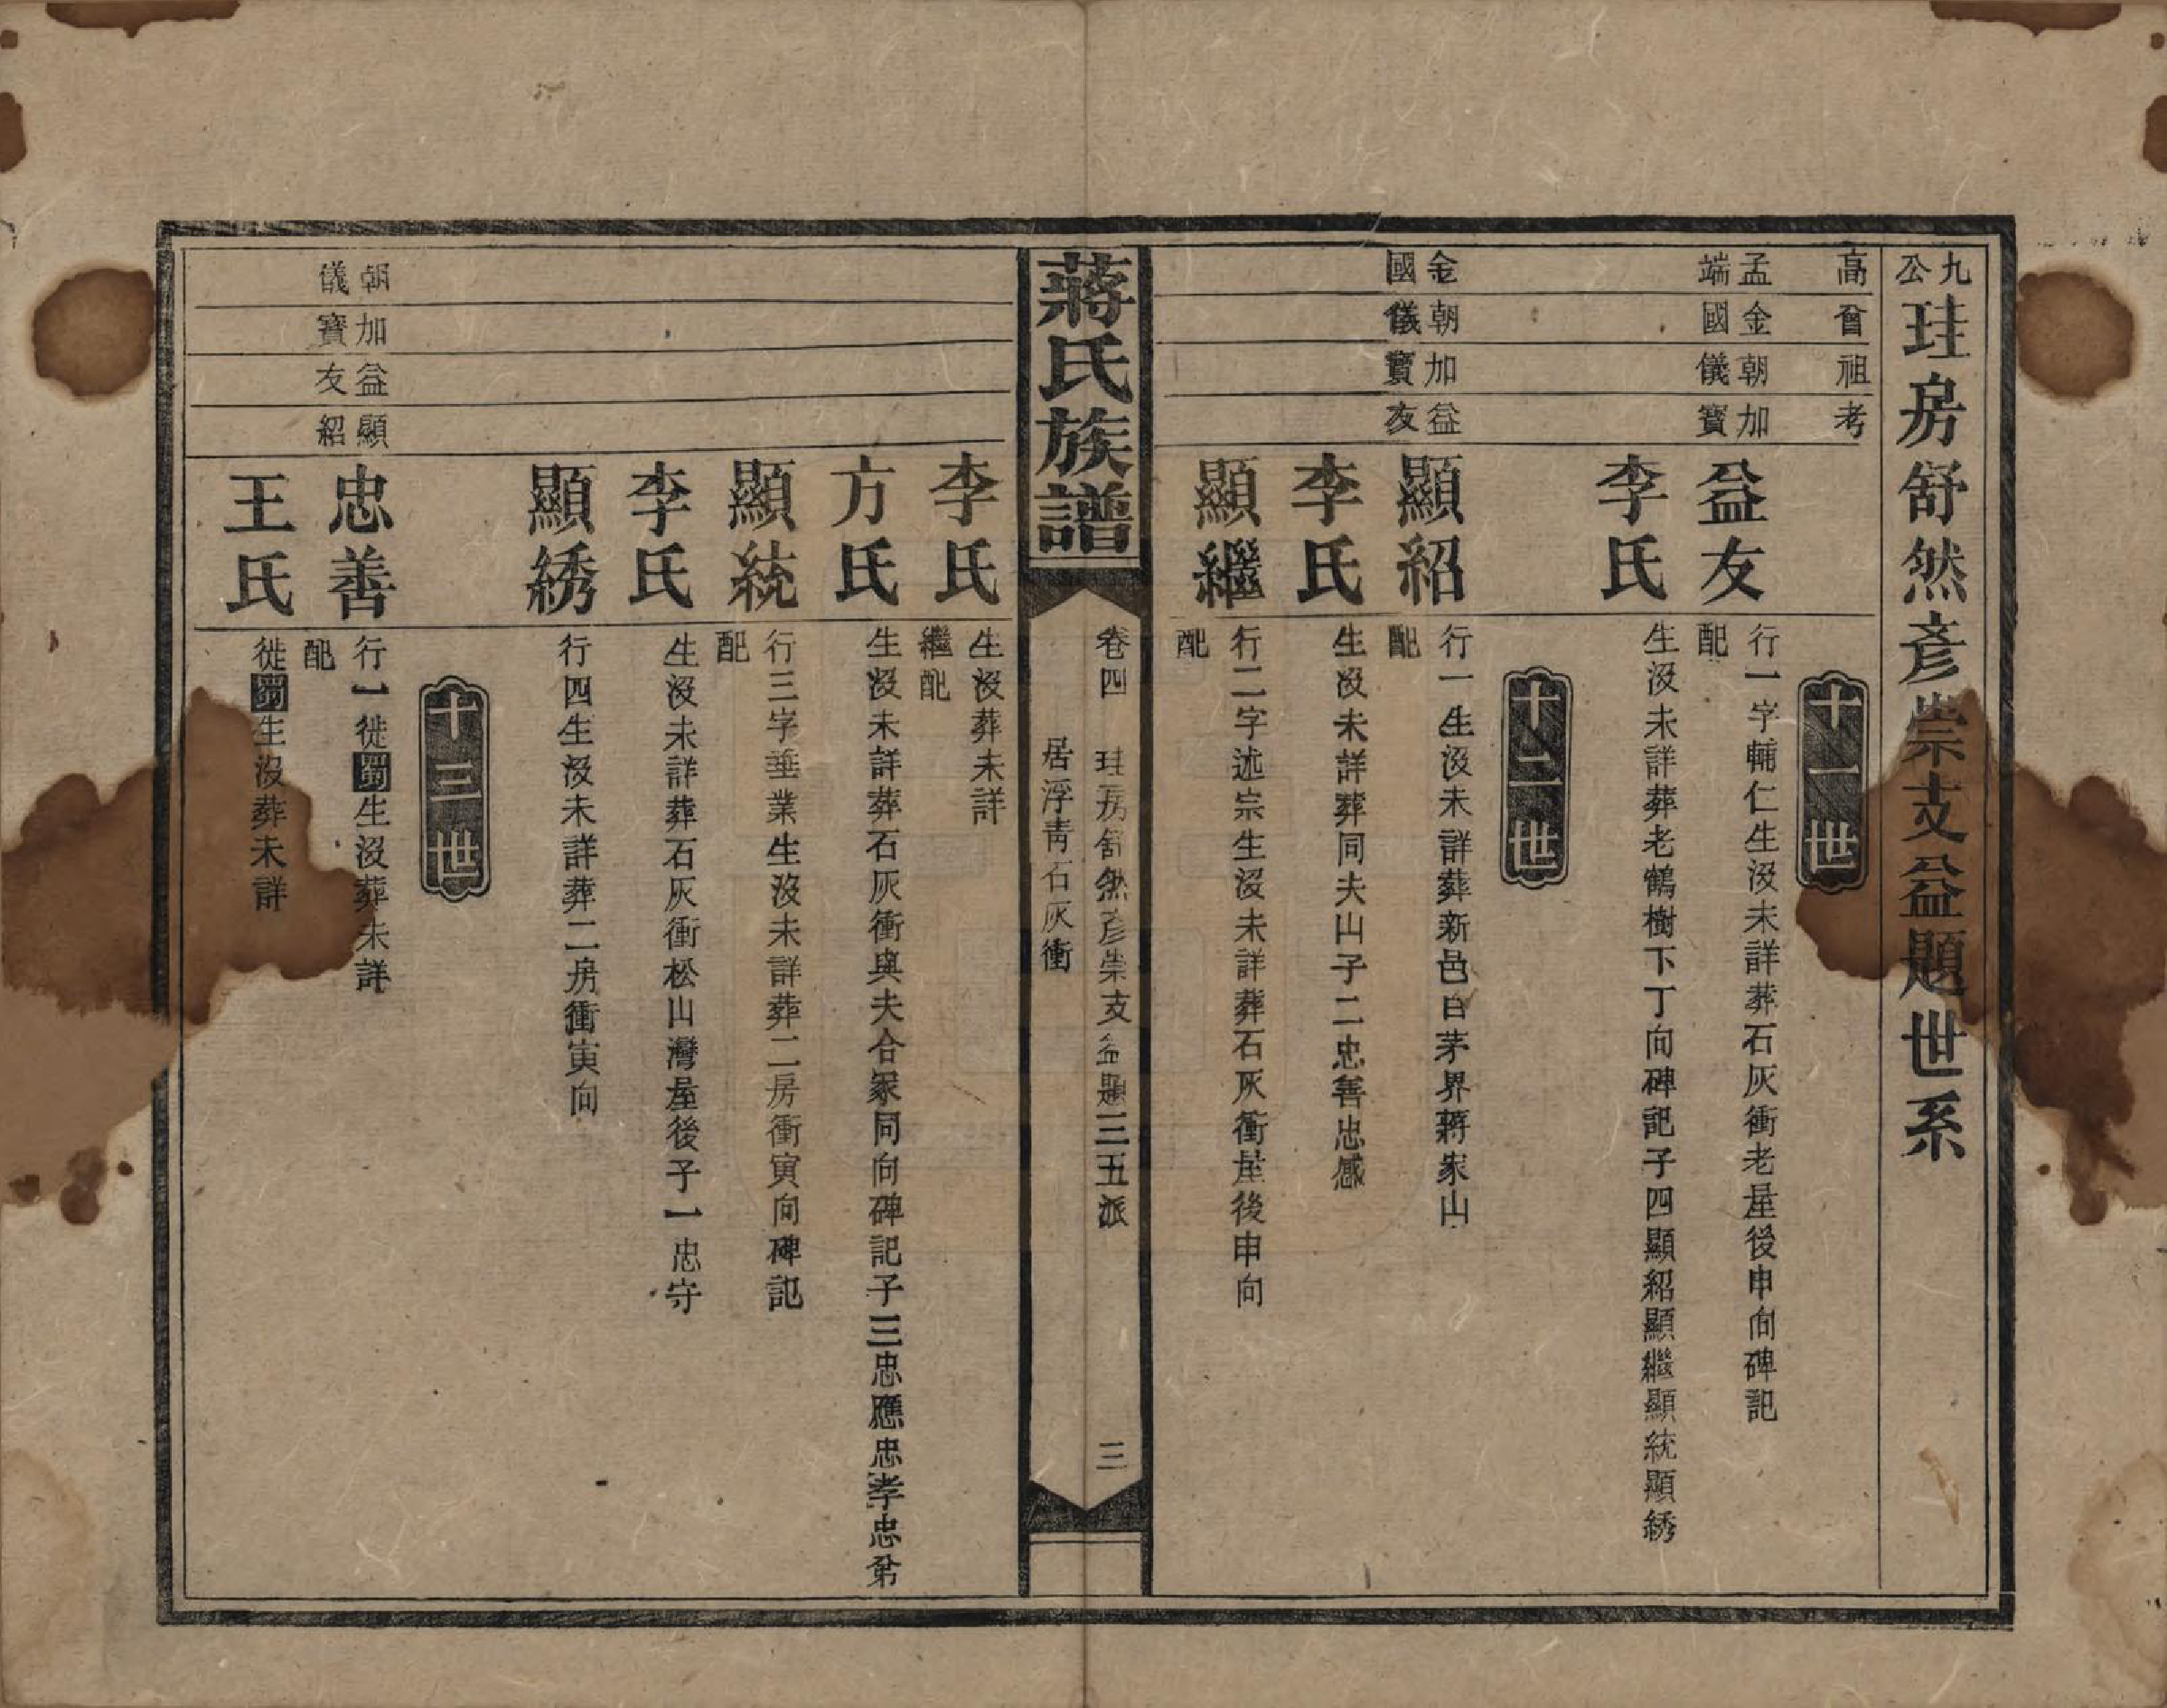 九公珪房舒然彥崇支益題世系
高曾祖考
十一世
孟端
金國
朝儀
加寶
益友
行一字輔仁生沒未詳葬石灰衝老屋後申向碑記
配
李氏
生沒未詳葬老鶴樹下丁向碑記子四顯紹顯繼顯統顯綉
十二世
金國
朝儀
加寶
益友
顯紹
行一生沒未詳葬新邑白茅界蔣家山
配
李氏
生沒未詳葬同夫山子二忠善忠感
顯繼
行二字述宗生沒未詳葬石灰衝屋後申向
配
蔣氏族譜
卷四 珪房舒然彥崇支益題三五派 三
居浮青石灰衝
李氏
生沒葬未詳
繼配
方氏
生沒未詳葬石灰衝與夫合冢同向碑記子三忠應忠孝忠弟
顯統
行三字垂業生沒未詳葬二房衝寅向碑記
配
李氏
生沒未詳葬石灰衝松山灣屋後子一忠守
顯綉
行四生沒未詳葬二房衝寅向
十三世
朝儀
加寶
益友
顯紹
忠善
行一徙蜀生沒葬未詳
配
王氏
徙蜀生沒葬未詳